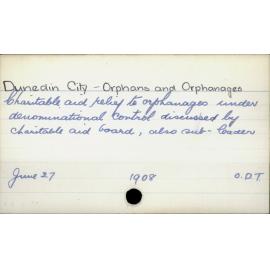 Dunedin City - Orphans and Orphanages
Charitable aid relief to orphanages under
denominational control discussed by
charitable aid board, also sub-leader
June 27 1908 O.D.T.